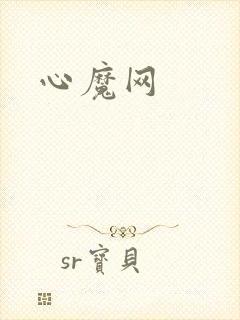 心魔网
sr寶貝